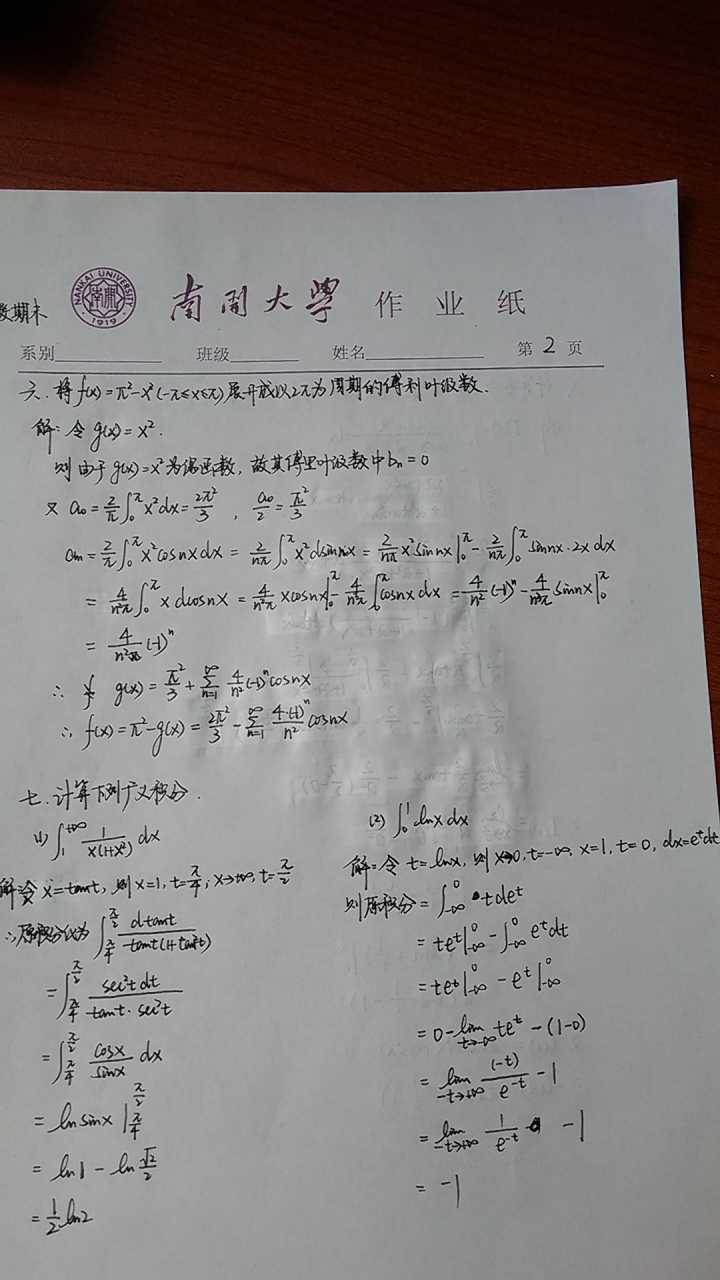 数期末
NANKAI UNIVERSITY
1919
南開大學 作 业 纸
系别 班级 姓名 第 2 页
六.将f(x)=π²-x²(-π≤x≤π)展开成以2π为周期的傅利叶级数.
解:令 g(x)=x².
则由于g(x)=x²为偶函数,故其傅里叶级数中bₙ=0
又 a₀=2/π∫₀^π x²dx=2π²/3 , a₀/2=π²/3
aₙ=2/π∫₀^π x²cosnxdx = 2/(nπ)∫₀^π x²dsinnx = 2/(nπ) x²sinnx|₀^π - 2/(nπ)∫₀^π sinnx·2xdx
= 4/(n²π)∫₀^π x dcosnx = 4/(n²π) xcosnx|₀^π - 4/(n²π)∫₀^π cosnx dx = 4/n² (-1)ⁿ - 4/(n³π) sinnx|₀^π
= 4/n² (-1)ⁿ
∴ g(x) = π²/3 + ∑_{n=1}^∞ 4/n² (-1)ⁿcosnx
∴ f(x)=π²-g(x) = 2π²/3 - ∑_{n=1}^∞ 4·(-1)ⁿ/n² cosnx
七.计算下列广义积分.
(1) ∫₁^{+∞} 1/(x(1+x²)) dx
解:令 x=tant, 则x=1, t=π/4; x→+∞, t=π/2
∴原积分化为 ∫_{π/4}^{π/2} dtant/(tant(1+tan²t))
= ∫_{π/4}^{π/2} sec²tdt/(tant·sec²t)
= ∫_{π/4}^{π/2} cosx/sinx dx
= ln sinx |_{π/4}^{π/2}
= ln1 - ln √2/2
= 1/2 ln2
(2) ∫₀¹ lnxdx
解:令 t=lnx, 则 x→0, t=-∞, x=1, t=0, dx=eᵗdt
则原积分= ∫_{-∞}^0 tdeᵗ
= teᵗ|_{-∞}^0 - ∫_{-∞}^0 eᵗdt
= teᵗ|_{-∞}^0 - eᵗ|_{-∞}^0
= 0 - lim_{t→-∞} teᵗ - (1-0)
= lim_{-t→+∞} (-t)/e^{-t} - 1
= lim_{-t→+∞} 1/e^{-t} - 1
= -1